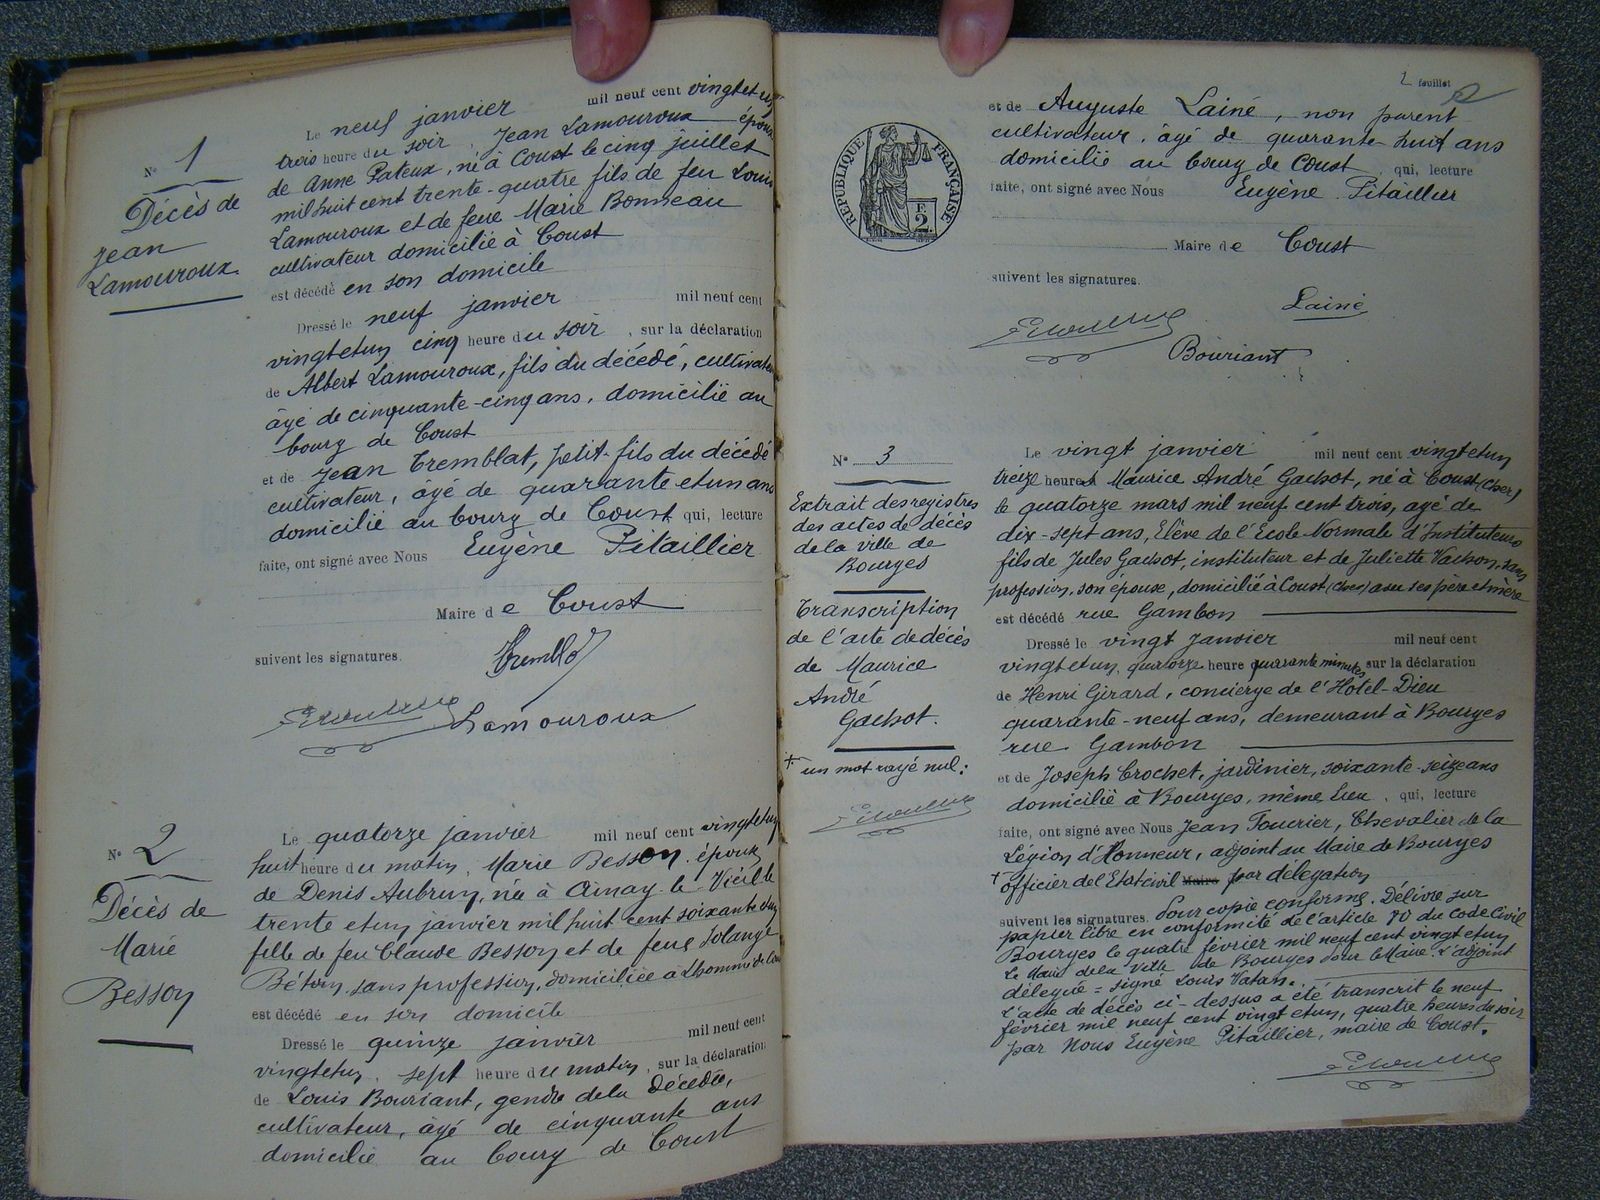 N° 1
Décès de
Jean
Lamouroux
Le neuf janvier mil neuf cent vingt et un
trois heure du soir, Jean Lamouroux époux
de Anne Pateux, né à Coust le cinq juillet
mil huit cent trente-quatre fils de feu Louis
Lamouroux et de feue Marie Bonneau
cultivateur domicilié à Coust
est décédé en son domicile
Dressé le neuf janvier mil neuf cent
vingt et un cinq heure du soir, sur la déclaration
de Albert Lamouroux, fils du décédé, cultivateur
âgé de cinquante-cinq ans, domicilié au
bourg de Coust
et de Jean Tremblat, petit-fils du décédé
cultivateur, âgé de quarante et un ans
domicilié au bourg de Coust qui, lecture
faite, ont signé avec Nous Eugène Pitaillier
Maire de Coust
suivent les signatures.
Lamouroux
N° 2
Décès de
Marie
Besson
Le quatorze janvier mil neuf cent vingt et un
huit heure du matin, Marie Besson, épouse
de Denis Aubrun, née à Ainay-le-Vieil le
trente et un janvier mil huit cent soixante et un
fille de feu Claude Besson et de feue Solange
Béton, sans profession, domiciliée à Lhomme de
est décédé en son domicile
Dressé le quinze janvier mil neuf cent
vingt et un, sept heure du matin, sur la déclaration
de Louis Bouriant, gendre de la décédée,
cultivateur, âgé de cinquante ans
domicilié au bourg de Coust
2 feuillet
2
et de Auguste Lainé, non parent
cultivateur, âgé de quarante-huit ans
domicilié au bourg de Coust, qui, lecture
faite, ont signé avec Nous Eugène Pitaillier
Maire de Coust
suivent les signatures.
Lainé
Bouriant
RÉPUBLIQUE FRANÇAISE
2 F
N° 3
Extrait des registres
des actes de décès
de la ville de
Bourges
Transcription
de l'acte de décès
de Maurice
André
Gachot.
+ un mot rayé nul:
Le vingt janvier mil neuf cent vingt et un
treize heures Maurice André Gachot, né à Coust (Cher)
le quatorze mars mil neuf cent trois, âgé de
dix-sept ans, Elève de l'Ecole Normale d'Instituteurs
fils de Jules Gachot, instituteur et de Juliette Vachon, sans
profession, son épouse, domicilié à Coust (Cher) avec ses père et mère
est décédé rue Gambon
Dressé le vingt janvier mil neuf cent
vingt et un, quatorze heure quarante minutes, sur la déclaration
de Henri Girard, concierge de l'Hotel-Dieu
quarante-neuf ans, demeurant à Bourges
rue Gambon
et de Joseph Crochet, jardinier, soixante-seize ans
domicilié à Bourges, même lieu, qui, lecture
faite, ont signé avec Nous Jean Fourier, Chevalier de la
Légion d'Honneur, adjoint au Maire de Bourges
+ officier de l'Etat civil Maire par délégation
suivent les signatures. Pour copie conforme. Délivré sur
papier libre en conformité de l'article 80 du Code Civil
Bourges le quatre février mil neuf cent vingt et un
Le Maire de la Ville de Bourges Pour le Maire. L'adjoint
délégué = signé Louis Vatan.
L'acte de décès ci-dessus a été transcrit le neuf
février mil neuf cent vingt et un, quatre heures du soir
par Nous Eugène Pitaillier, maire de Coust.